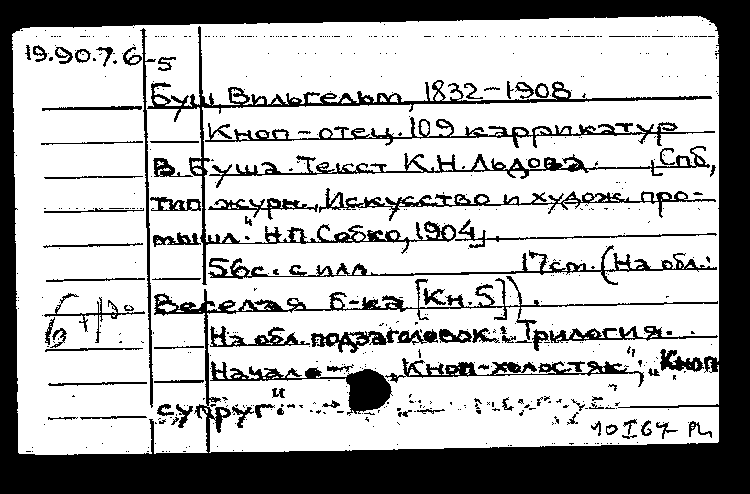 19.90.7.6-5
Буш, Вильгельм, 1832-1908.
Кноп-отец. 109 каррикатур
В. Буша. Текст К.Н. Льдова. [Спб,
тип. журн. „Искусство и худож. про-
мышл." Н.П. Собко, 1904].
56с. с илл. 17см. (На обл.:
Веселая б-ка [Кн. 5]).
На обл. подзаголовок: Трилогия.
Начало — „Кноп-холостяк"; „Кноп
супруг".
10 I 67